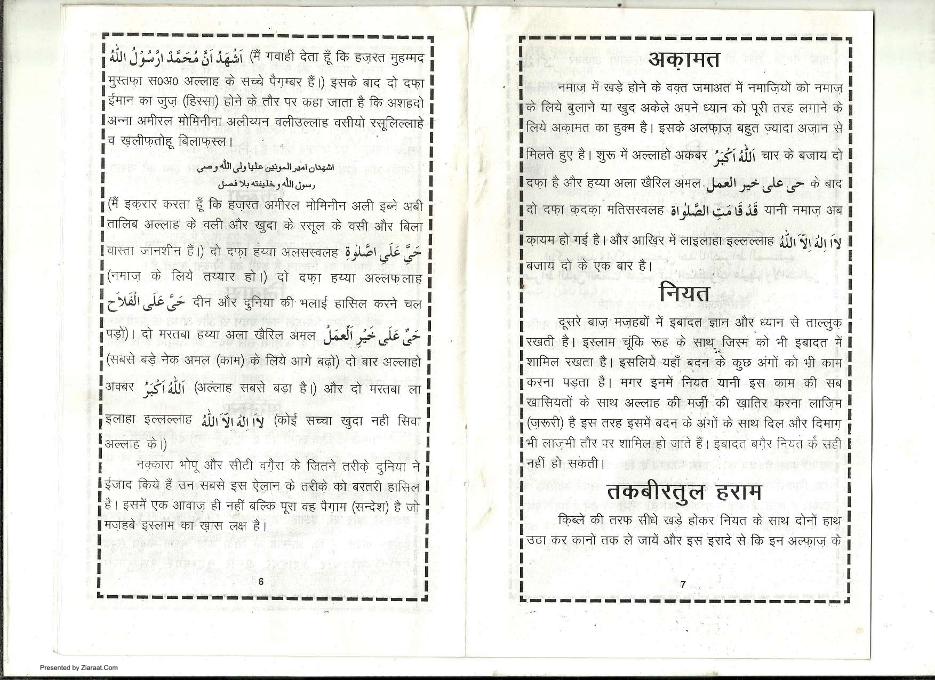 اَشْهَدُ اَنَّ مُحَمَّدْ ارُسُوْلُ اللهُ (मैं गवाही देता हूँ कि हज़रत मुहम्मद
मुस्तफ़ा स०अ० अल्लाह के सच्चे पैग़म्बर हैं।) इसके बाद दो दफ़ा
ईमान का जुज़ (हिस्सा) होने के तौर पर कहा जाता है कि अशहदो
अन्ना अमीरल मोमिनीना अलीय्यन वलीउल्लाह वसीयो रसूलिल्लाहे
व ख़लीफ़तोहू बिलाफ़स्ल।
اشهدان امير المونين عليا ولى الله و صى
رسول الله و خليفته بلا فصل
(मैं इक़रार करता हूँ कि हज़रत अमीरल मोमिनीन अली इब्ने अबी
तालिब अल्लाह के वली और खुदा के रसूल के वसी और बिला
वास्ता जानशीन हैं।) दो दफ़ा हय्या अलसस्वलह حَيَّ عَلَي اصَّلوٰة
(नमाज़ के लिये तय्यार हो।) दो दफ़ा हय्या अल्लफ़लाह
حَيَّ عَلَى الْفَلَاَح दीन और दुनिया की भलाई हासिल करने चल
पड़ो)। दो मरतबा हय्या अला खैरिल अमल حَيَّ عَلَى خَيْرِ الْعَمَلْ
(सबसे बड़े नेक अमल (काम) के लिये आगे बढ़ो) दो बार अल्लाहो
अक्बर اَللهُ اَكْبَرُ (अल्लाह सबसे बड़ा है।) और दो मरतबा ला
इलाहा इल्लल्लाह لَاَ اِلٰهَ اِلاَّ اللهُ (कोई सच्चा खुदा नही सिवा
अल्लाह के।)
नक्कारा भोपू और सीटी वग़ैरा के जितने तरीक़े दुनिया ने
ईजाद किये हैं उन सबसे इस ऐलान के तरीक़े को बरतरी हासिल
है। इसमें एक आवाज़ ही नहीं बल्कि पूरा वह पैग़ाम (सन्देश) है जो
मज़हबे इस्लाम का ख़ास लक्ष है।
6
अक़ामत
नमाज में खड़े होने के वक़्त जमाअत में नमाज़ियों को नमाज़
के लिये बुलाने या खुद अकेले अपने ध्यान को पूरी तरह लगाने के
लिये अक़ामत का हुक्म है। इसके अलफाज़ बहुत ज़्यादा अजान से
मिलते हुए है। शुरू में अल्लाहो अकबर اَللهُ اَكْبَرُ चार के बजाय दो
दफ़ा है और हय्या अला खैरिल अमल حى على خير العمل के बाद
दो दफ़ा क़दक़ा मतिसस्वलह قَدْ قَا مَتِ الصَّلوٰاة यानी नमाज़ अब
क़ायम हो गई है। और आखिर में लाइलाहा इल्लल्लाह لَاَ اِلٰهَ اِلاَّ اللهُ
बजाय दो के एक बार है।
नियत
दूसरे बाज़ मज़हबों में इबादत ज्ञान और ध्यान से ताल्लुक़
रखती है। इस्लाम चूंकि रूह के साथ जिस्म को भी इबादत में
शामिल रखता है। इसलिये यहाँ बदन के कुछ अंगों को भी काम
करना पड़ता है। मगर इनमें नियत यानी इस काम की सब
खासियतों के साथ अल्लाह की मर्ज़ी की खातिर करना लाज़िम
(ज़रूरी) है इस तरह इसमें बदन के अंगों के साथ दिल और दिमाग़
भी लाज़मी तौर पर शामिल हो जाते हैं। इबादत बग़ैर नियत के सही
नहीं हो सकती।
तकबीरतुल हराम
क़िब्ले की तरफ सीधे खड़े होकर नियत के साथ दोनों हाथ
उठा कर कानों तक ले जायें और इस इरादे से कि इन अल्फ़ाज़ के
7
Presented by Ziaraat.Com